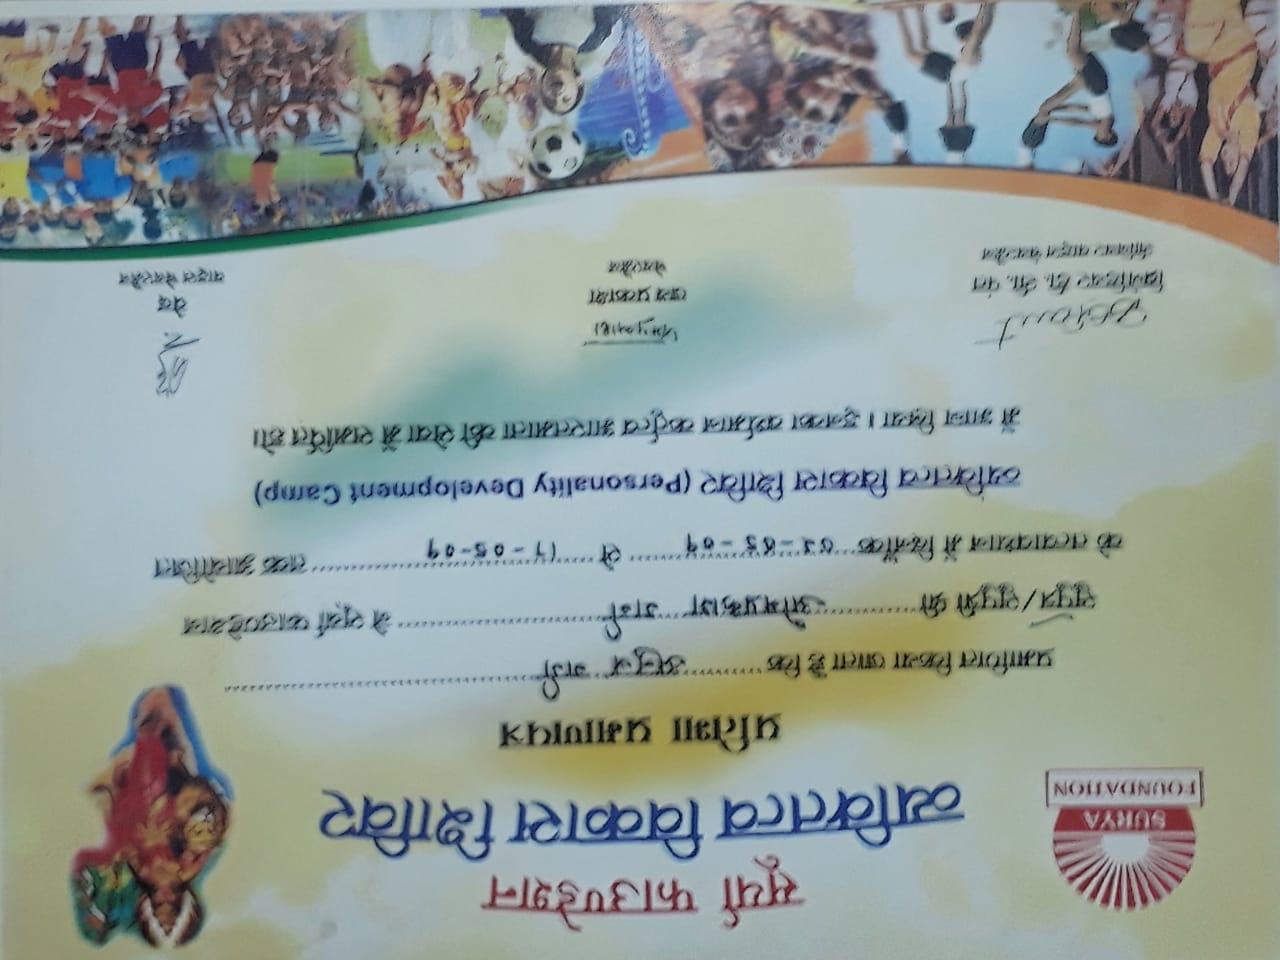 SURYA
FOUNDATION
सूर्या फाउण्डेशन
व्यक्तित्व विकास शिविर
प्रतिभा प्रमाणपत्र
प्रमाणित किया जाता है कि अनुज गर्ग
सुपुत्र/सुपुत्री श्री ओमप्रकाश गर्ग ने सूर्या फाउण्डेशन
के तत्वावधान में दिनाँक से 17-05-09 तक आयोजित
व्यक्तित्व विकास शिविर (Personality Development Camp)
में भाग लिया। इनका वर्धमान कर्तृत्व भारतमाता की सेवा में समर्पित हो।
ब्रिगेडियर डी. सी. पंत
सीनियर वाइस चेयरमैन
जयप्रकाश
जय प्रकाश
चेयरमैन
वेद
वाइस चेयरमैन